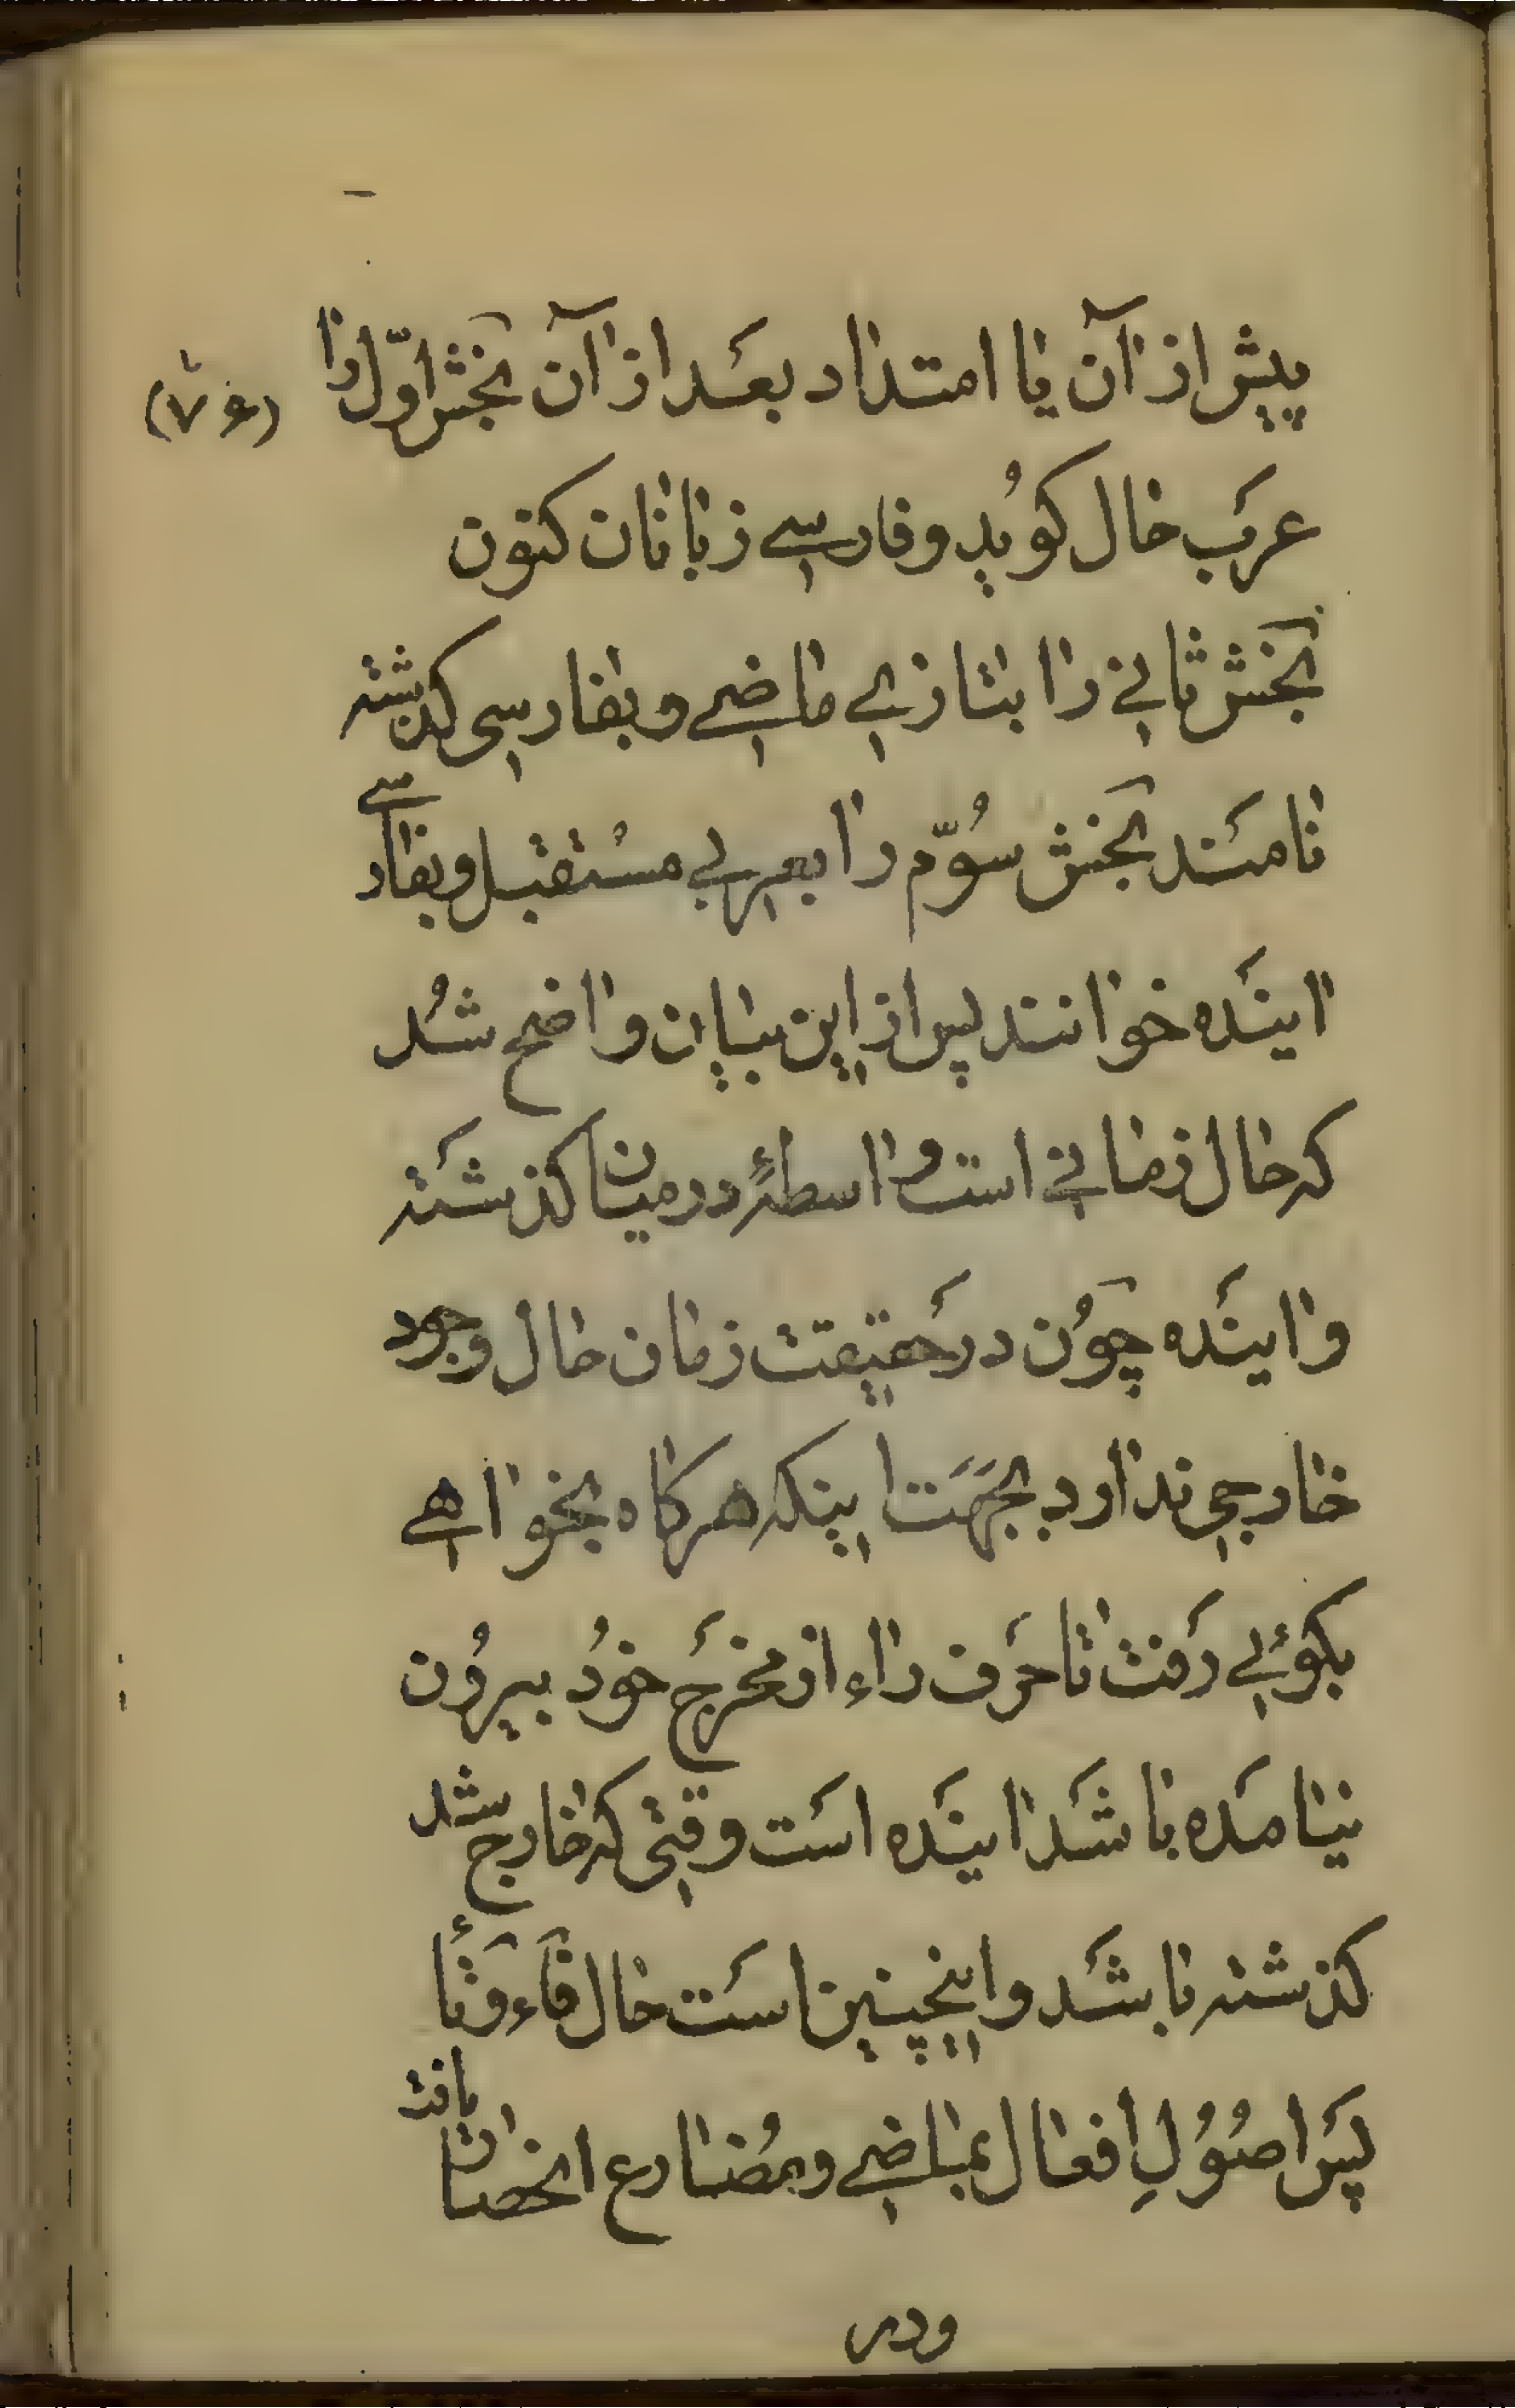 پیش از آن یا امتداد بعد از آن بخش اوّل را
(۷۶)
عرب حال کوید و فارسی زبانان کنون
بخش ثانی را بتازی ماضی و بفارسی کذشته
نامند بخش سوّم را بعربی مستقبل و بفارسی
اینده خوانند پس از این بیان واضح شد
که حال زمانی است واسطهٔ در میان کذشته
و اینده چون در حقیقت زمان حال وجود
خارجی ندارد بجهت اینکه هرکاه بخواهی
بکوئی رفت تا حرف راء از مخرج خود بیرون
نیامده باشد اینده است وقتی که خارج شد
کذشته باشد و اینچنین است حال فاء و تاء
پس اصول افعال بماضی و مضارع انحصار یافت
ودر